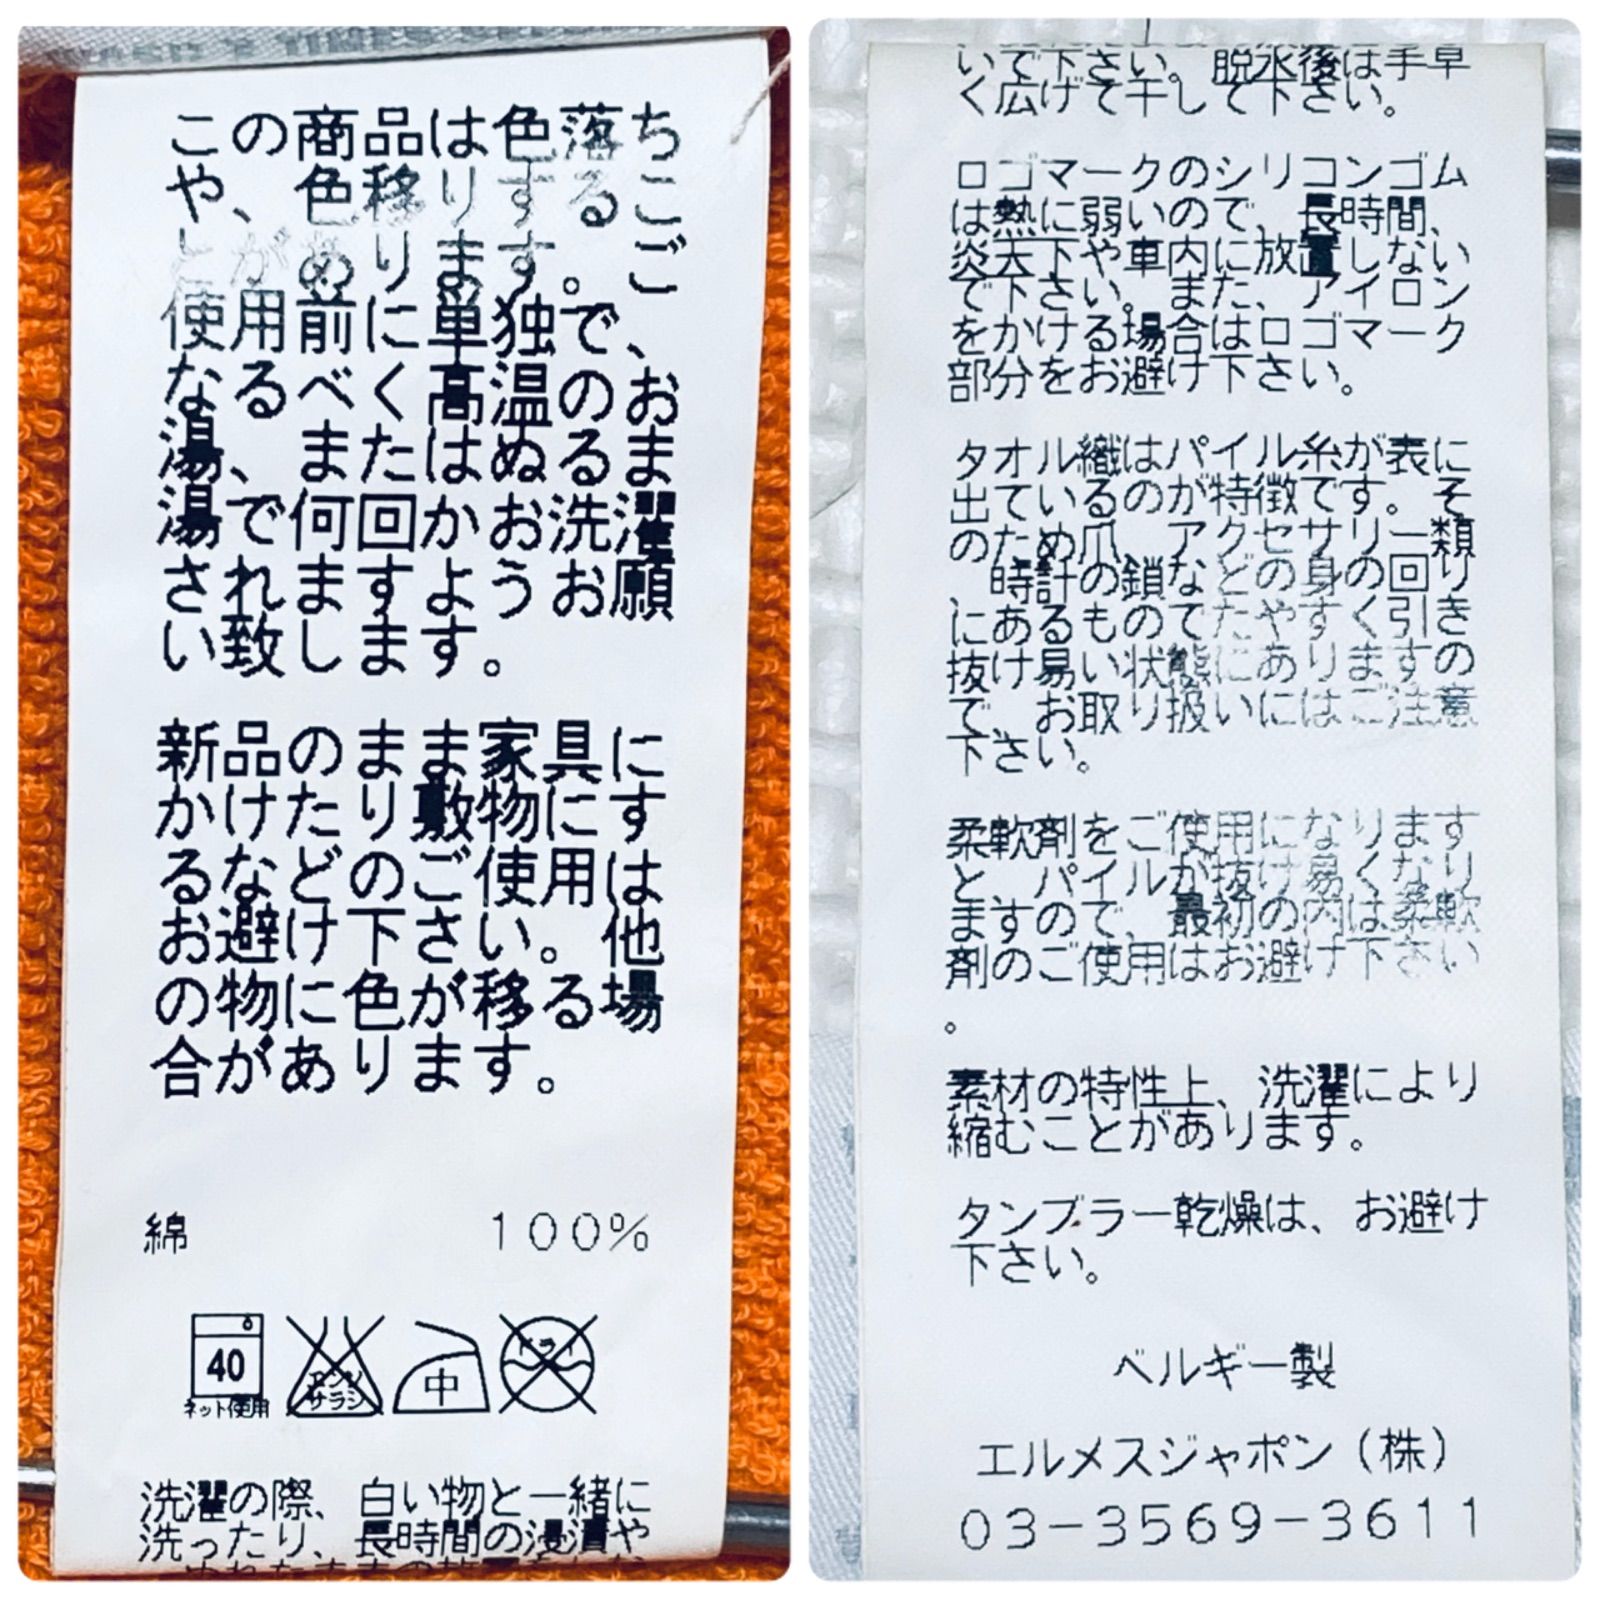 この商品は色落ち
や、色移りするこ
とがあります。ご
使用前に単独で、
なるべく高温のお
湯、またはぬるま
湯で何回かお洗濯
されますようお願
い致します。
新品のまま家具に
かけたり敷物にす
るなどのご使用は
お避け下さい。他
の物に色が移る場
合があります。
綿 100%
40
ネット使用
エンソ
サラシ
中
ドライ
洗濯の際、白い物と一緒に
洗ったり、長時間の浸漬や
いで下さい。脱水後は手早
く広げて干して下さい。
ロゴマークのシリコンゴム
は熱に弱いので、長時間、
炎天下や車内に放置しない
で下さい。また、アイロン
をかける場合はロゴマーク
部分をお避け下さい。
タオル織はパイル糸が表に
出ているのが特徴です。そ
のため爪、アクセサリー類
、時計の鎖などの身の回り
にあるものでたやすく引き
抜け易い状態にありますの
で、お取り扱いにはご注意
下さい。
柔軟剤をご使用になります
と、パイルが抜け易くなり
ますので、最初の内は柔軟
剤のご使用はお避け下さい
。
素材の特性上、洗濯により
縮むことがあります。
タンブラー乾燥は、お避け
下さい。
ベルギー製
エルメスジャポン(株)
03-3569-3611